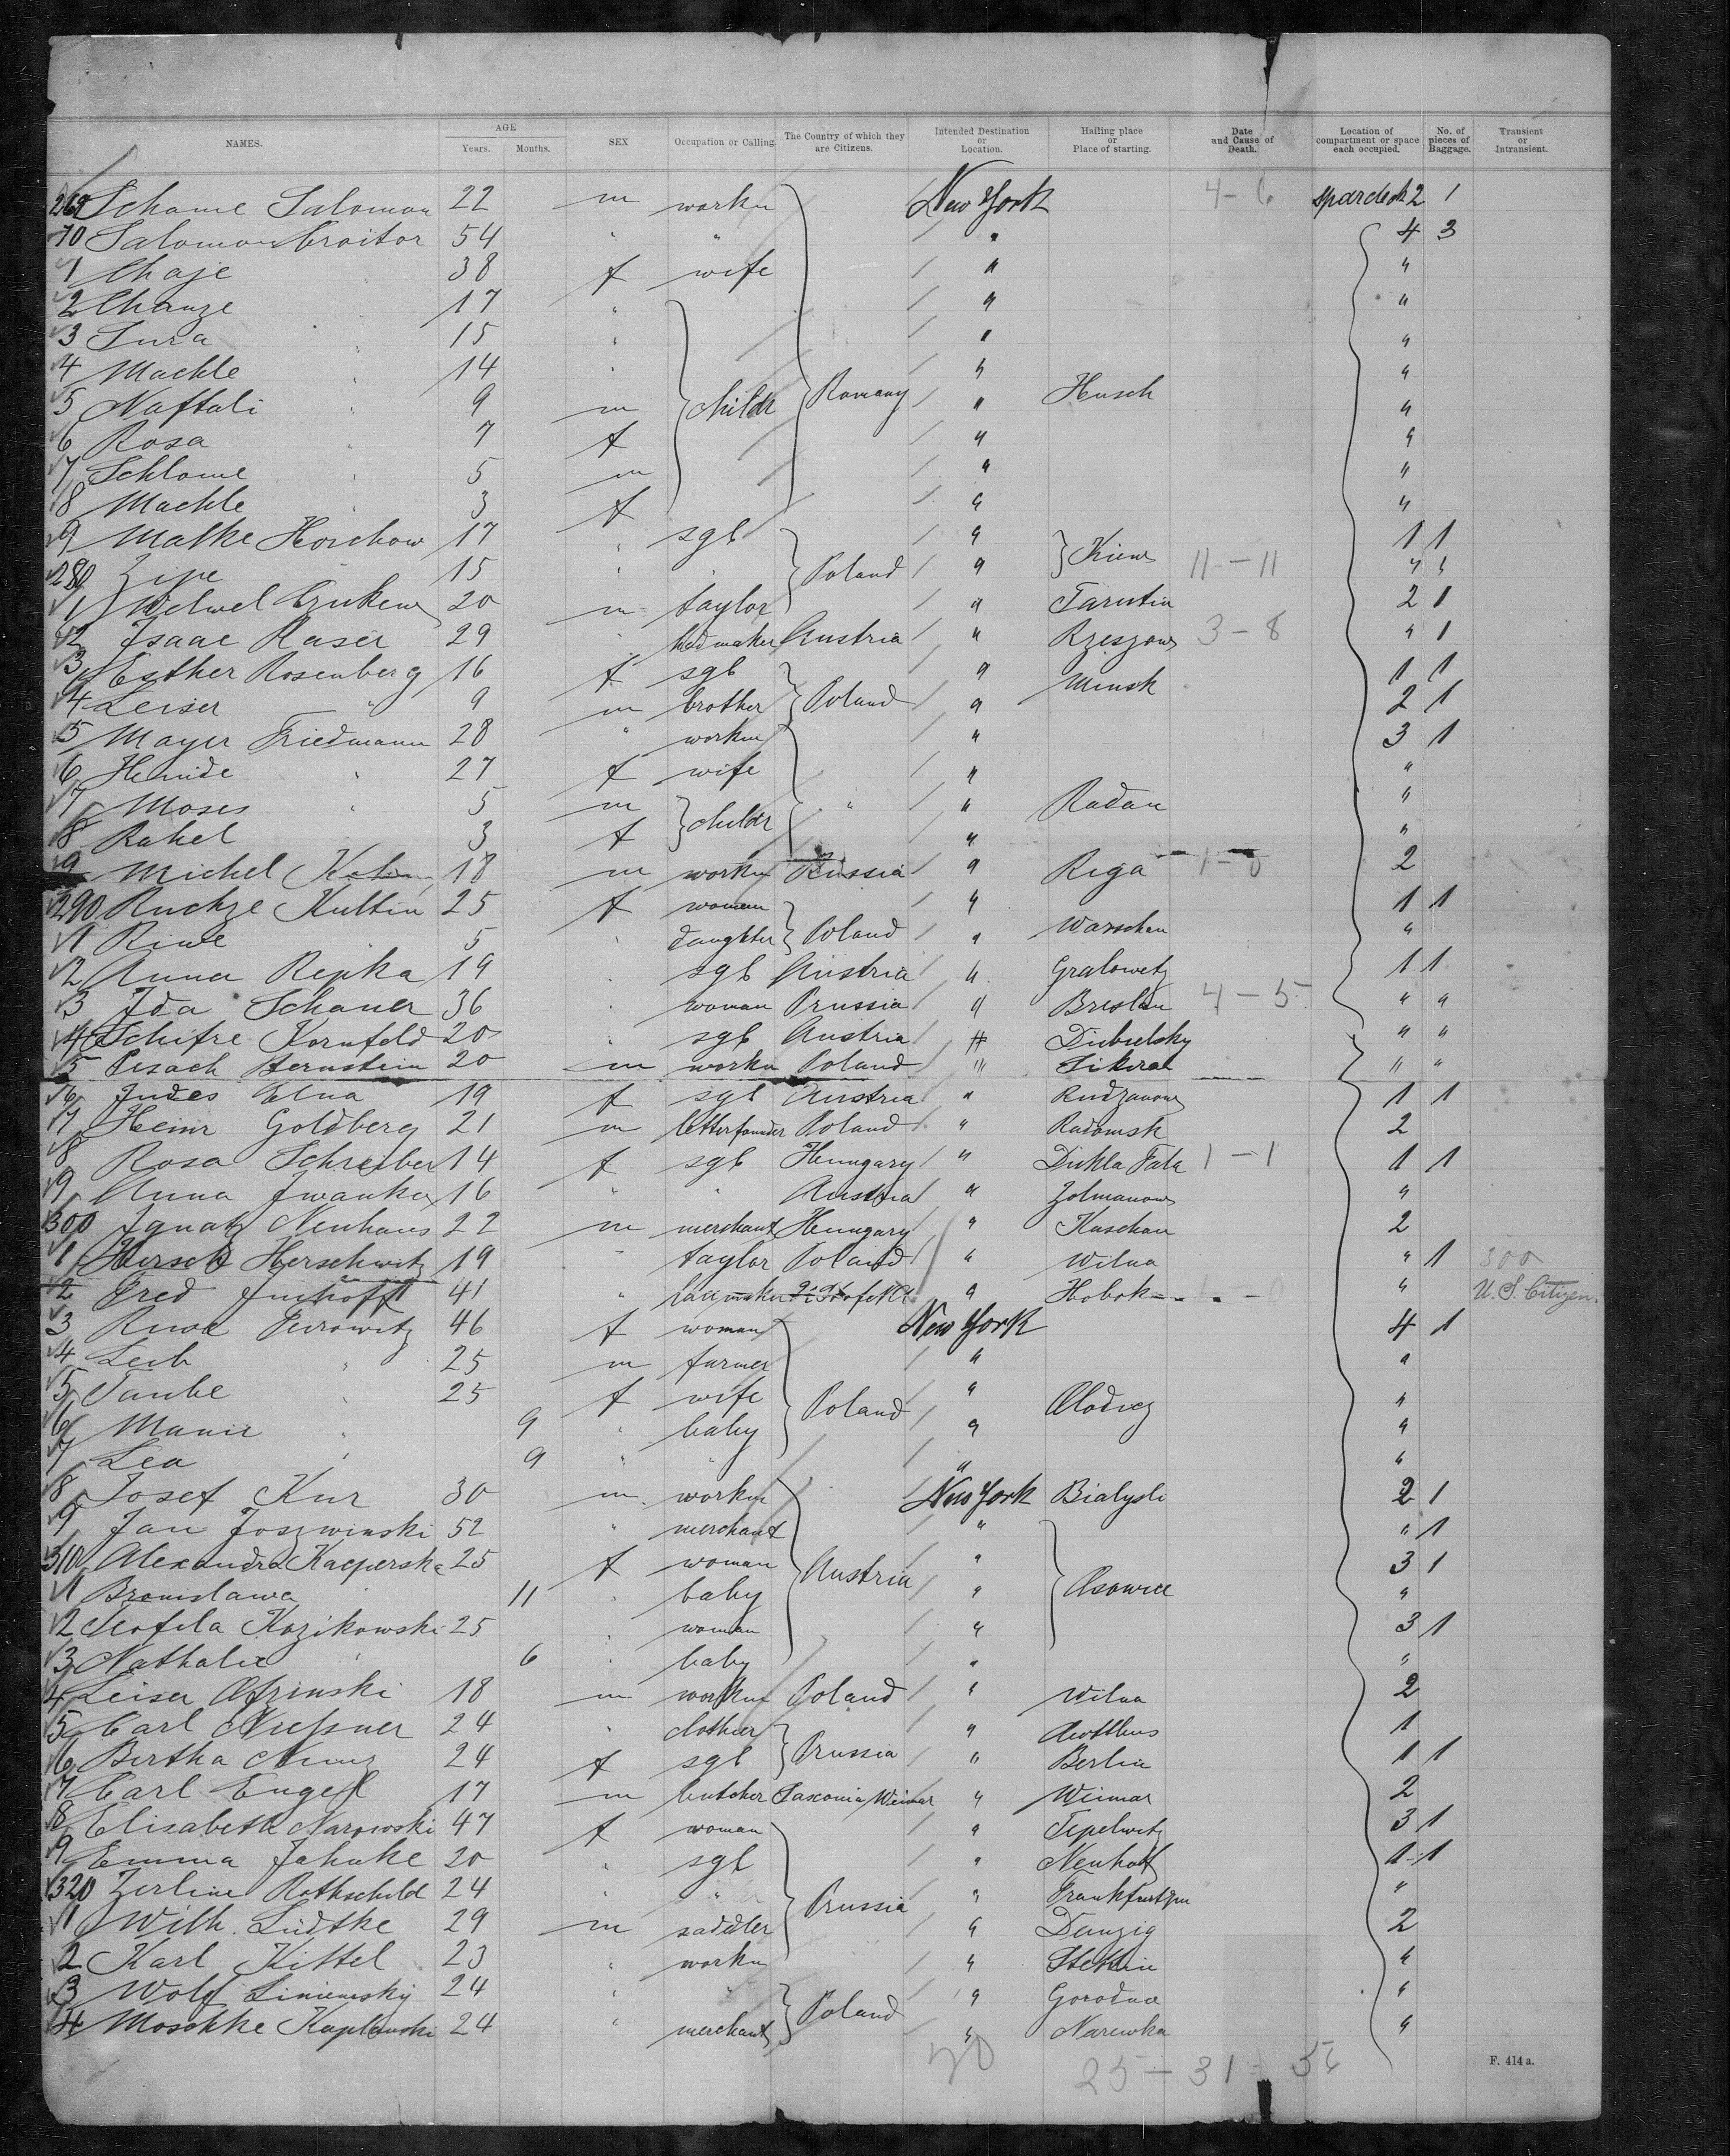 NAMES. AGE Years. Months. SEX Occupation or Calling. The Country of which they are Citizens. Intended Destination or Location. Hailing place or Place of starting. Date and Cause of Death. Location of compartment or space each occupied. No. of pieces of Baggage. Transient or Intransient.
269 Schame Salomon 22 m workm New York 4-6 spardeck 2 1
70 Salomon Croitor 54 " " " 4 3
1 Chaje 38 f wife " "
2 Chanze 17 " " "
3 Sura 15 " " "
4 Machle 14 " " "
5 Naftali " 9 m childr Romany " Husch "
6 Rosa " 7 f " "
7 Schlome " 5 m " "
8 Machle " 3 f " "
9 Malke Horchow 17 " sgl " 1 1
280 Zipe 15 " " Poland " Kiew 11-11 " "
1 Welwel 20 m taylor " Tarutin 2 1
2 Isaac Kaser 29 " Austria " Rzeszow 3-8 " 1
3 Esther Rosenberg 16 f sgl " Minsk 1 1
4 Leiser " 9 m brother Poland " 2 1
5 Mayer Friedmann 28 " workm " 3 1
6 Heinde " 27 f wife " "
7 Moses " 5 m childr " " Radau "
8 Rahel 3 f " "
9 Michel 18 m workm Russia " Riga 1-0 2
290 Ruchze Kultin 25 f woman " 1 1
1 Riwe 5 " daughter Poland " Warschau "
2 Anna Repka 19 " sgl Austria " Gralowetz 1 1
3 Ida Schauer 36 " woman Prussia " Breslau 4-5 " "
4 Schifre Kornfeld 20 " sgl Austria " " "
5 Pesach Bernstein 20 m workm Poland " " "
6 Judes 19 f sgl Austria " Rudzanow 1 1
7 Heinr Goldberg 21 m letterfounder Poland " Radomsk 2
8 Rosa Schreiber 14 f sgl Hungary " Dukla 1-1 1 1
9 Anna Iwanka 16 " " Austria " Zolmanow "
300 Ignatz Neuhaus 22 m merchant Hungary " Kaschau 2
1 Hersch Herschwitz 19 " taylor Poland " Wilna " 1 300
2 Fred Imhoff 41 " " Hobok "  U.S. Citizen.
3 46 f woman New York 4 1
4 Leib " 25 m farmer " "
5 Taube " 25 f wife Poland " "
6 Manie " 9 " baby " "
7 Lea " 9 " " " "
8 Josef Kur 30 m workm New York 2 1
9 Jan Joszwinski 52 " merchant " " 1
310 Alexandra Kacperska 25 f woman Austria " 3 1
1 Bronislawa 11 " baby " "
2 Teofila Kozikowski 25 " woman " 3 1
3 Nathalie " 6 " baby " "
4 Leiser 18 m workm Poland " Wilna 2
5 Carl 24 " clothier " 1
6 Bertha 24 f sgl Prussia " Berlin 1 1
7 Carl Engel 17 m butcher Saxonia Weimar " Weimar 2
8 Elisabeth Narowski 47 f woman " 3 1
9 Emma Jahnke 20 " sgl " Neuhof 1 1
320 Zerline Rothschild 24 " " Prussia " "
1 Wilh. Lüdtke 29 m saddler " Danzig 2
2 Karl Kittel 23 " workm " Stettin "
3 Wolf 24 " " Poland " Gorodna "
4 Moschke 24 " merchant " Narewka "
70 25-31 56
F. 414 a.